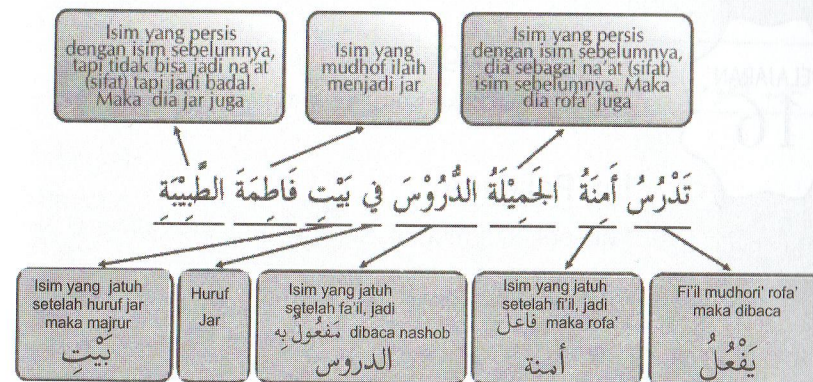 Isim yang persis
dengan isim sebelumnya,
tapi tidak bisa jadi na'at
(sifat) tapi jadi badal.
Maka dia jar juga
Isim yang
mudhof ilaih
menjadi jar
Isim yang persis
dengan isim sebelumnya,
dia sebagai na'at (sifat)
isim sebelumnya. Maka
dia rofa' juga
تَدْرُسُ أَمِنَةُ الجَمِيْلَةُ الدُّرُوْسَ في بَيْتِ فَاطِمَةَ الطَّبِيْبَةِ
Isim yang jatuh
setelah huruf jar
maka majrur
بَيْتِ
Huruf
Jar
Isim yang jatuh
setelah fa'il, jadi
مَفعُولٌ بِه dibaca nashob
الدروس
Isim yang jatuh
setelah fi'il, jadi
فاعل maka rofa'
أمنة
Fi'il mudhori' rofa'
maka dibaca
يَفْعُلُ
ELAJARAN
16